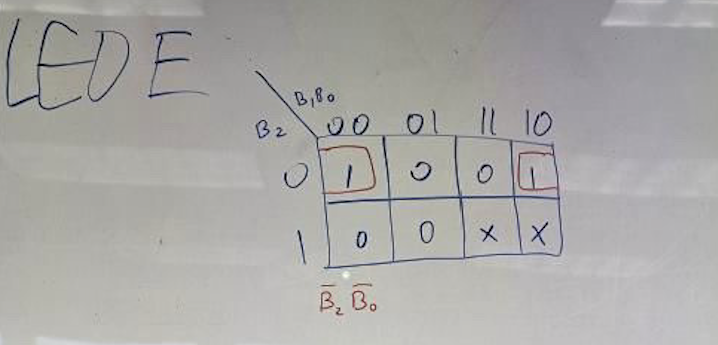 LED E
B₁B₀
B₂ 00 01 11 10
0 1 0 0 1
1 0 0 x x
B̅₂ B̅₀